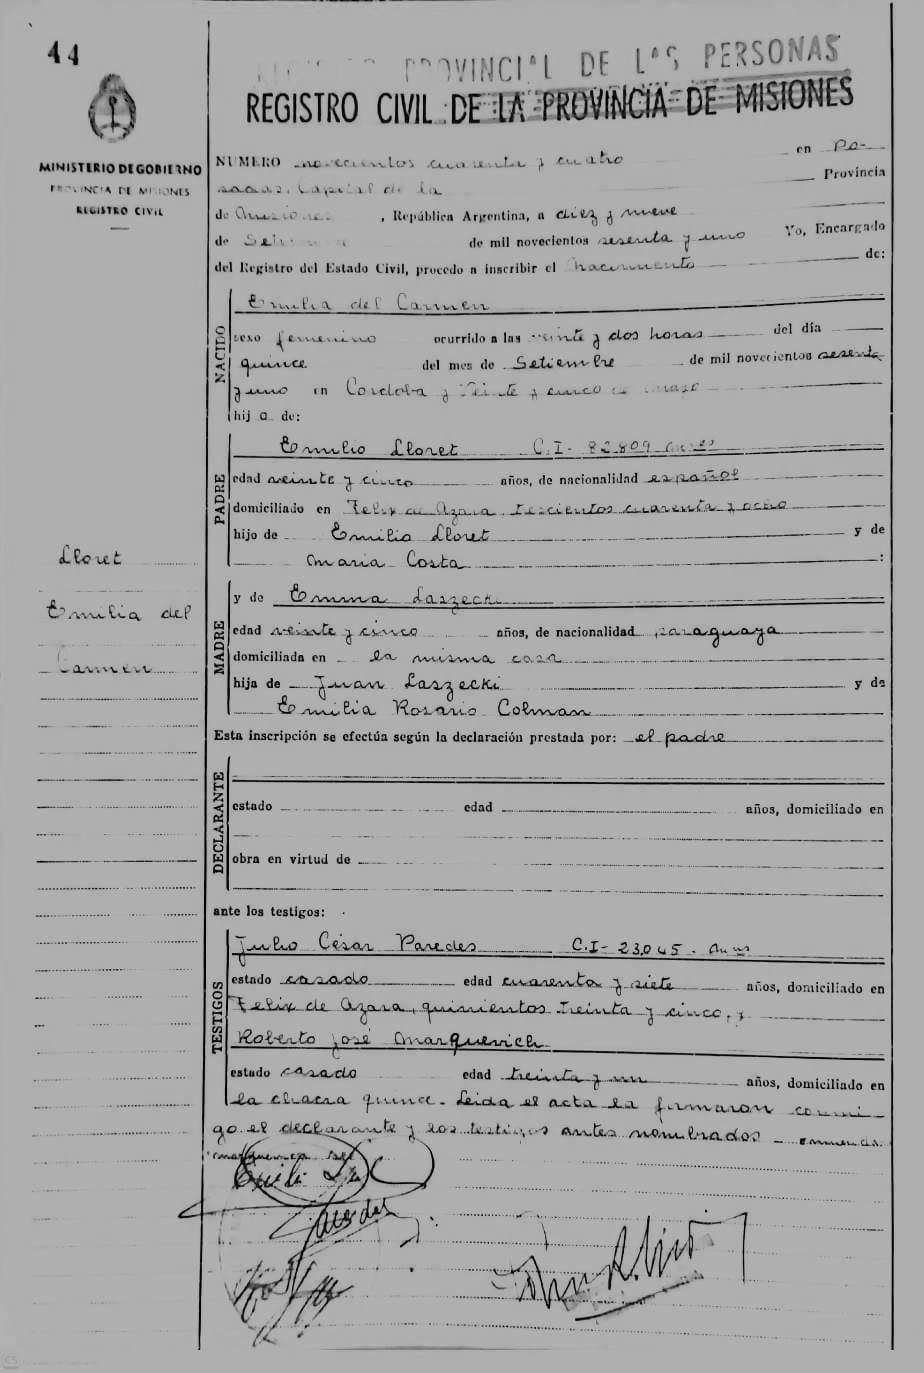 44
PROVINCIAL DE LAS PERSONAS
REGISTRO CIVIL DE LA PROVINCIA DE MISIONES
MINISTERIO DE GOBIERNO
PROVINCIA DE MISIONES
REGISTRO CIVIL
NUMERO novecientos cuarenta y cuatro en Po-
sadas, Capital de la Provincia
de Misiones, República Argentina, a diez y nueve
de Setiembre de mil novecientos sesenta y uno Yo, Encargado
del Registro del Estado Civil, procedo a inscribir el nacimiento de:
NACIDO
Emilia del Carmen
sexo femenino ocurrido a las veinte y dos horas del día
quince del mes de Setiembre de mil novecientos sesenta
y uno en Cordoba y Veinte y cinco de mayo
hij a de:
PADRE
Emilio Lloret C.I- 82.809
edad veinte y cinco años, de nacionalidad español
domiciliado en Felix de Azara trescientos cuarenta y ocho
hijo de Emilio Lloret y de
Maria Costa :
Lloret
Emilia del
Carmen
MADRE
y de Emma Laszecki
edad veinte y cinco años, de nacionalidad paraguaya
domiciliada en la misma casa
hija de Juan Laszecki y de
Emilia Rosario Colman
Esta inscripción se efectúa según la declaración prestada por: el padre
DECLARANTE
estado edad años, domiciliado en
obra en virtud de
ante los testigos:
TESTIGOS
Julio César Paredes C.I- 23.045-
estado casado edad cuarenta y siete años, domiciliado en
Felix de Azara, quinientos treinta y cinco, y
Roberto José Marquevich
estado casado edad treinta y un años, domiciliado en
la chacra quince. Leida el acta la firmaron conmi
go el declarante y los testigos antes nombrados -